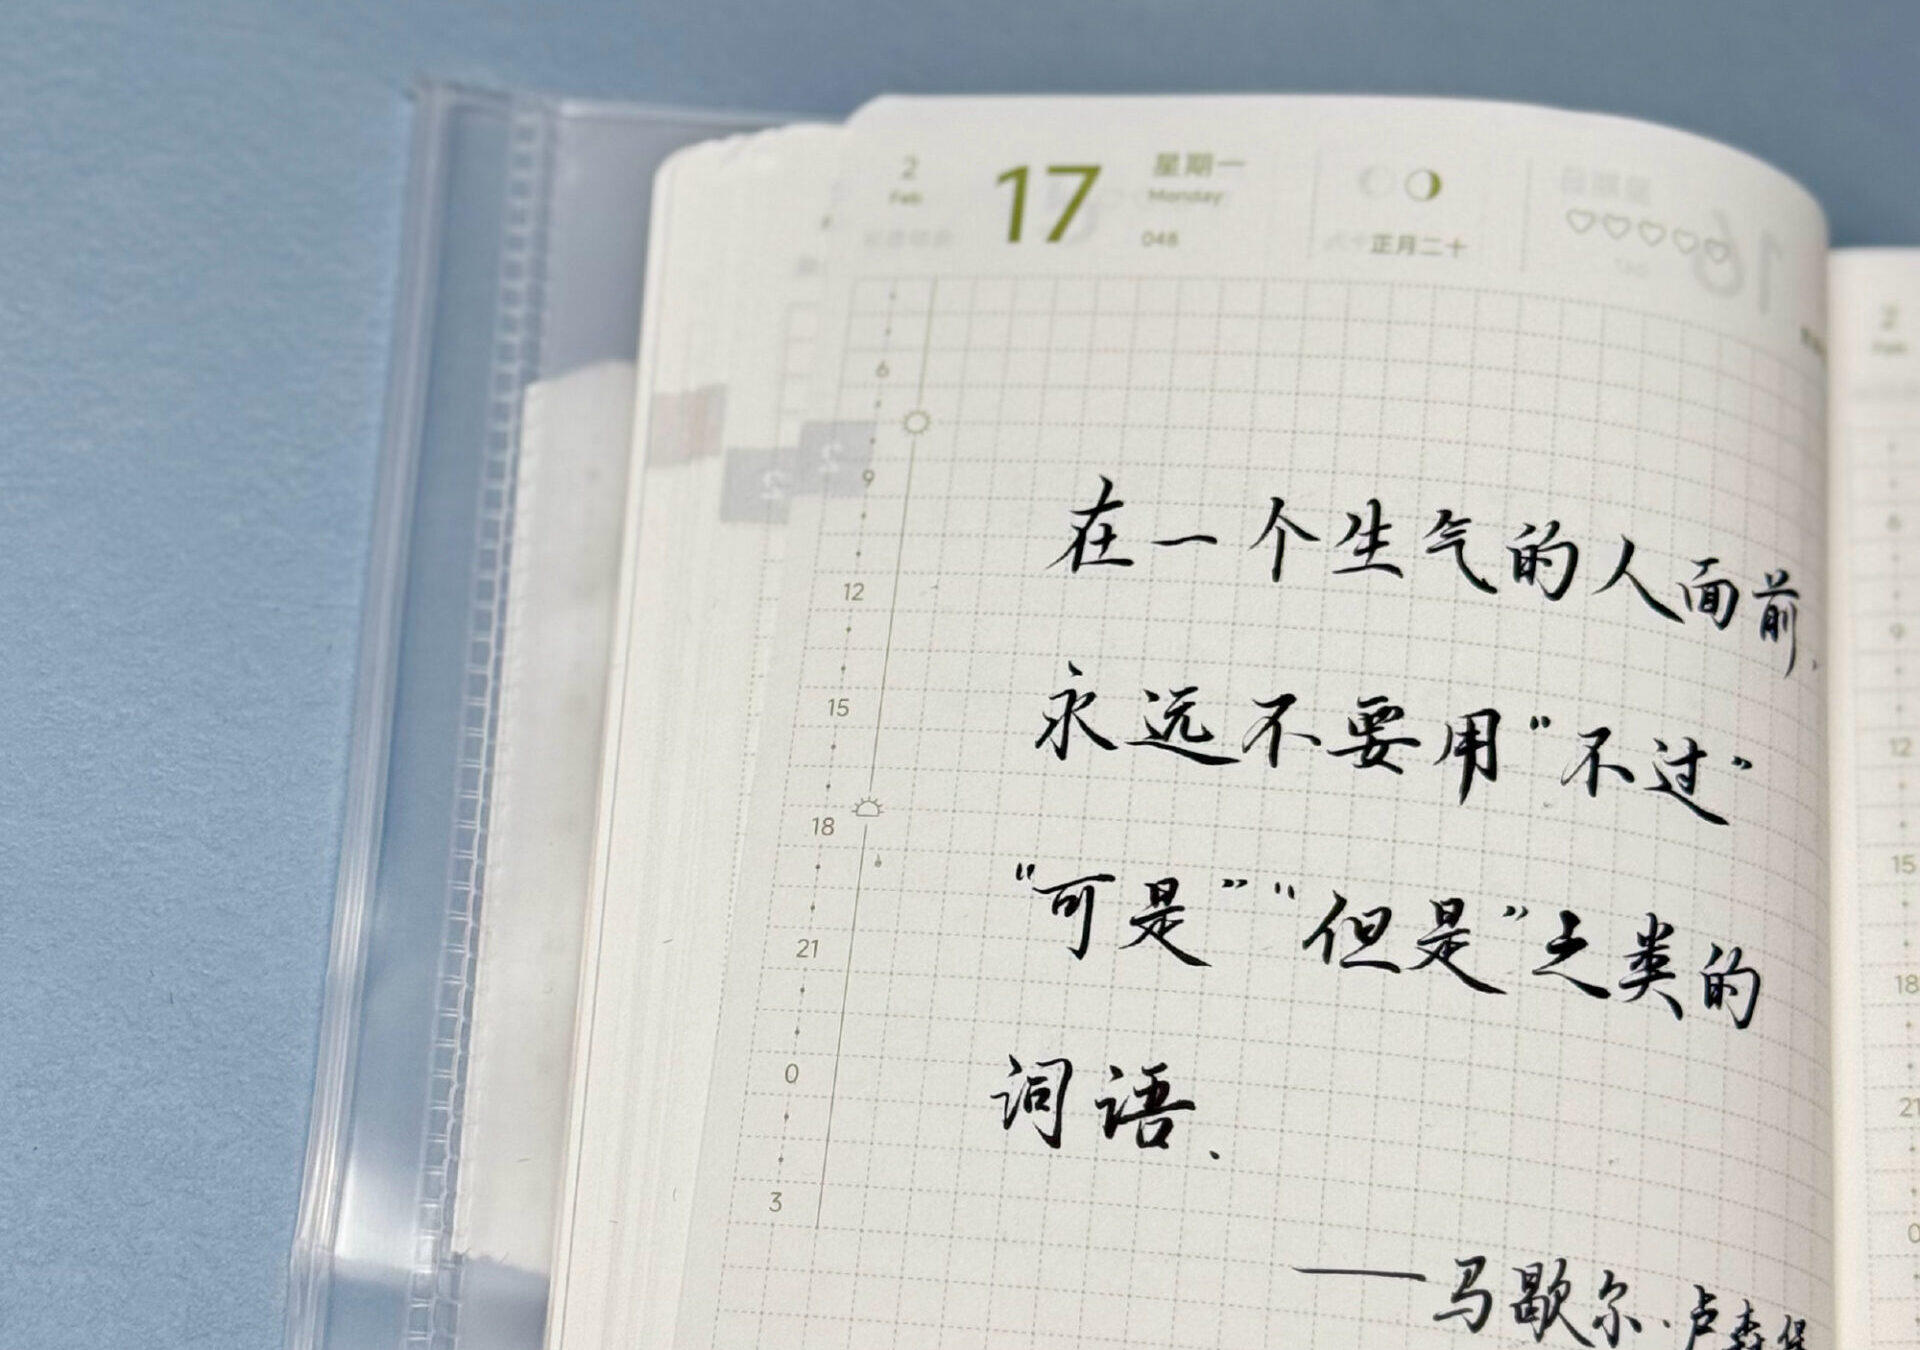 2
Feb
17
星期一
Monday
048
正月二十
6
9
12
15
18
21
0
3
在一个生气的人面前，
永远不要用“不过”
“可是”“但是”之类的
词语.
——马歇尔·卢森堡
2
Feb
6
9
12
15
18
21
0